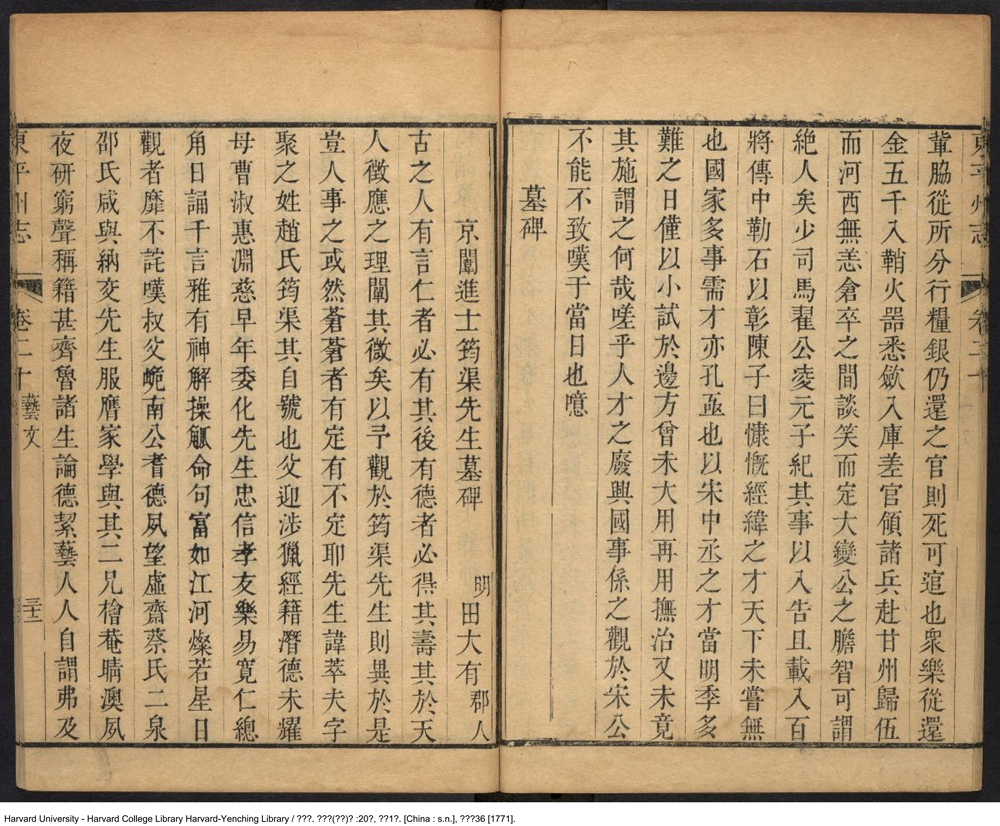 東平州志 卷二十
輦脇從所分行糧銀仍還之官則死可逭也衆樂從還
金五千入鞘火器悉歛入庫差官領諸兵赴甘州歸伍
而河西無恙倉卒之間談笑而定大變公之膽智可謂
絶人矣少司馬翟公凌元子紀其事以入告且載入百
將傳中勒石以彰陳子曰慷慨經緯之才天下未嘗無
也國家多事需才亦孔亟也以宋中丞之才當明季多
難之日僅以小試於邊方曾未大用再用撫治又未竟
其施謂之何哉嗟乎人才之廢興國事係之觀於宋公
不能不致嘆于當日也噫
墓碑
京闈進士筠渠先生墓碑 明田大有郡人
古之人有言仁者必有其後有德者必得其壽其於天
人徵應之理闡其微矣以予觀於筠渠先生則異於是
豈人事之或然蒼蒼者有定有不定耶先生諱萃夫字
聚之姓趙氏筠渠其自號也父迎涉獵經籍潛德未耀
母曹淑惠淵慈早年委化先生忠信孝友樂易寬仁總
角日誦千言雅有神解操觚命句富如江河燦若星日
觀者靡不詫嘆叔父㟴南公耆德夙望虛齋蔡氏二泉
邵氏咸與納交先生服膺家學與其二兄檜菴晴澳夙
夜研窮聲稱籍甚齊魯諸生論德絜藝人人自謂弗及
東平州志 卷二十 藝文 三十二
Harvard University - Harvard College Library Harvard-Yenching Library / ???. ???(??)? :20?, ??1?. [China : s.n.], ???36 [1771].